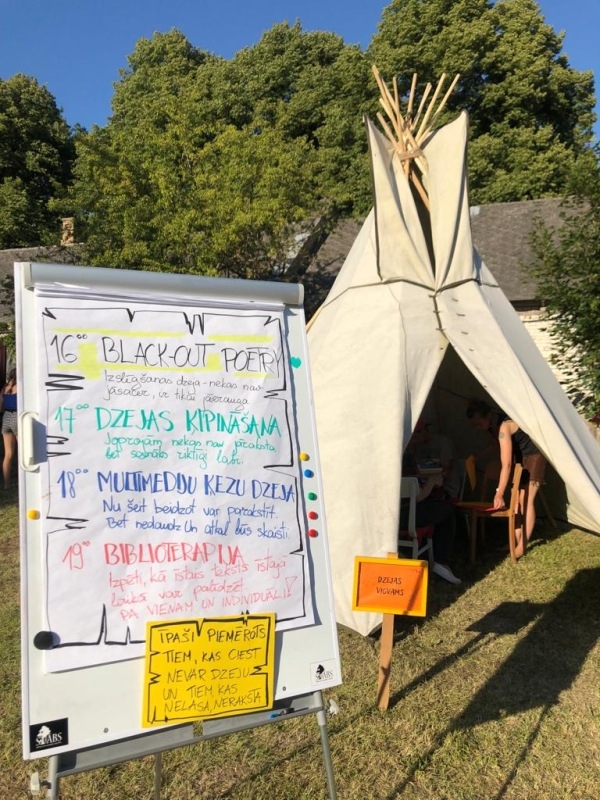 16⁰⁰ BLACK-OUT POERY
Izslēgšanas dzeja - nekas nav
jāsacer, ir tikai jāierauga
17⁰⁰ DZEJAS KIPINĀŠANA
Joprojām nekas nav jāraksta
bet sanāks riktīgi labi.
18⁰⁰ MULTIMEDIJU ĶEZU DZEJA
Nu šeit beidzot var parakstīt.
Bet nedaudz Un atkal būs skaisti.
19⁰⁰ BIBLIOTERAPIJA
Izpēti, kā īstais teksts īstajā
laikā var palīdzēt
PA VIENAM UN INDIVIDUĀLI!
ĪPAŠI PIEMĒROTS
TIEM, KAS CIEST
NEVAR DZEJU
UN TIEM, KAS
NELASA, NERAKSTA
DZEJAS
VIGVAMS
ABS